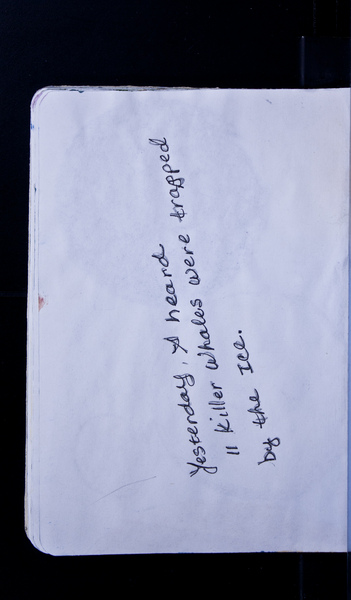 Yesterday, I heard
11 Killer Whales were trapped
by the Ice.